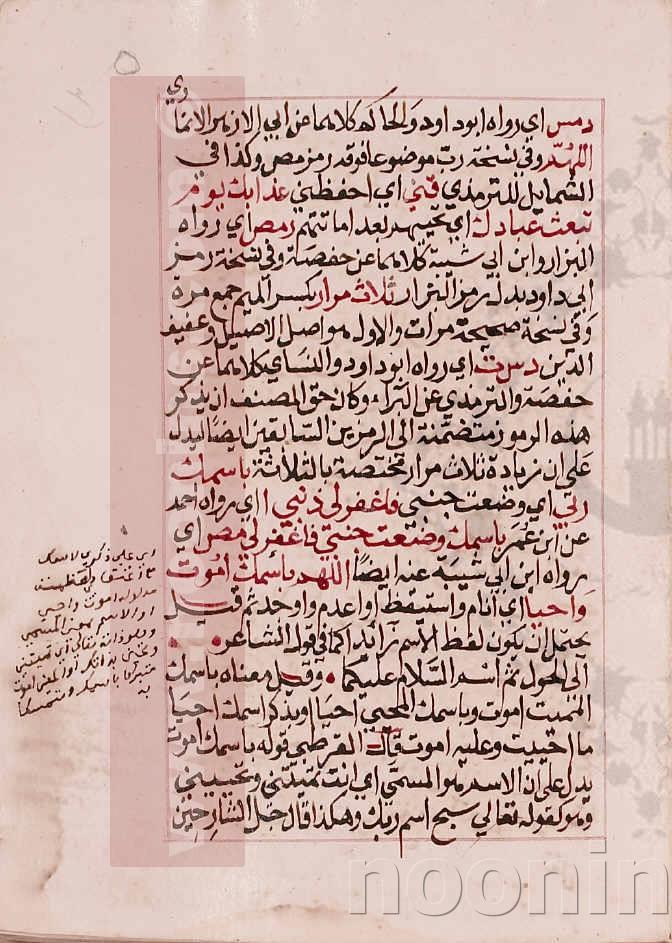 ري
دمس اي رواه ابو داود والحاكم كلاهما عن ابي الازهر الانما
اللهم وفي نسخة رب موضوعا فوقه رمز مص وكذا في
الشمايل للترمذي قني اي احفظني عذابك يوم
تبعث عبادك اي تحييهم بعد اماتتهم رمص اي رواه
البزار وابن ابي شيبة كلاهما عن حفصة وفي نسخة رمز
ابي داود بدل رمز البزار ثلاث مرار بكسر الميم جمع مرة
وفي نسخة صحيحة مرات والاول هو اصل الاصيل وعفيف
الدين دست اي رواه ابو داود والنساي كلاهما عن
حفصة والترمذي عن البراء وكان حق المصنف ان يذكر
هذه الرموز متضمنة الى الرمزين السابقين ايضا ليدل
على ان زيادة ثلاث مرار مختصة بالثلاثة باسمك
ربي اي وضعت جنبي فاغفر لي ذنبي ا اي رواه احمد
عن ابن عمر باسمك وضعت جنبي فاغفر لي مص اي
رواه ابن ابي شيبة عنه ايضا اللهم باسمك اموت
واحيا اي انام واستيقظ او اعدم واوجد ثم قيل
يحتمل ان يكون لفظ الاسم زائدا كما في قول الشاعر
الى الحول ثم اسم السلام عليكما وقيل معناه باسمك
المميت اموت وباسمك المحيي احيا او بذكر اسمك احيا
ما حييت وعليه اموت قال القرطبي قوله باسمك اموت
يدل على ان الاسم هو المسمى اي انت تميتني وتحييني
وهو كقوله تعالى سبح اسم ربك وهكذا قال جل الشارحين
اموت واحيى
او الاسم بمعنى المسمى
noonin